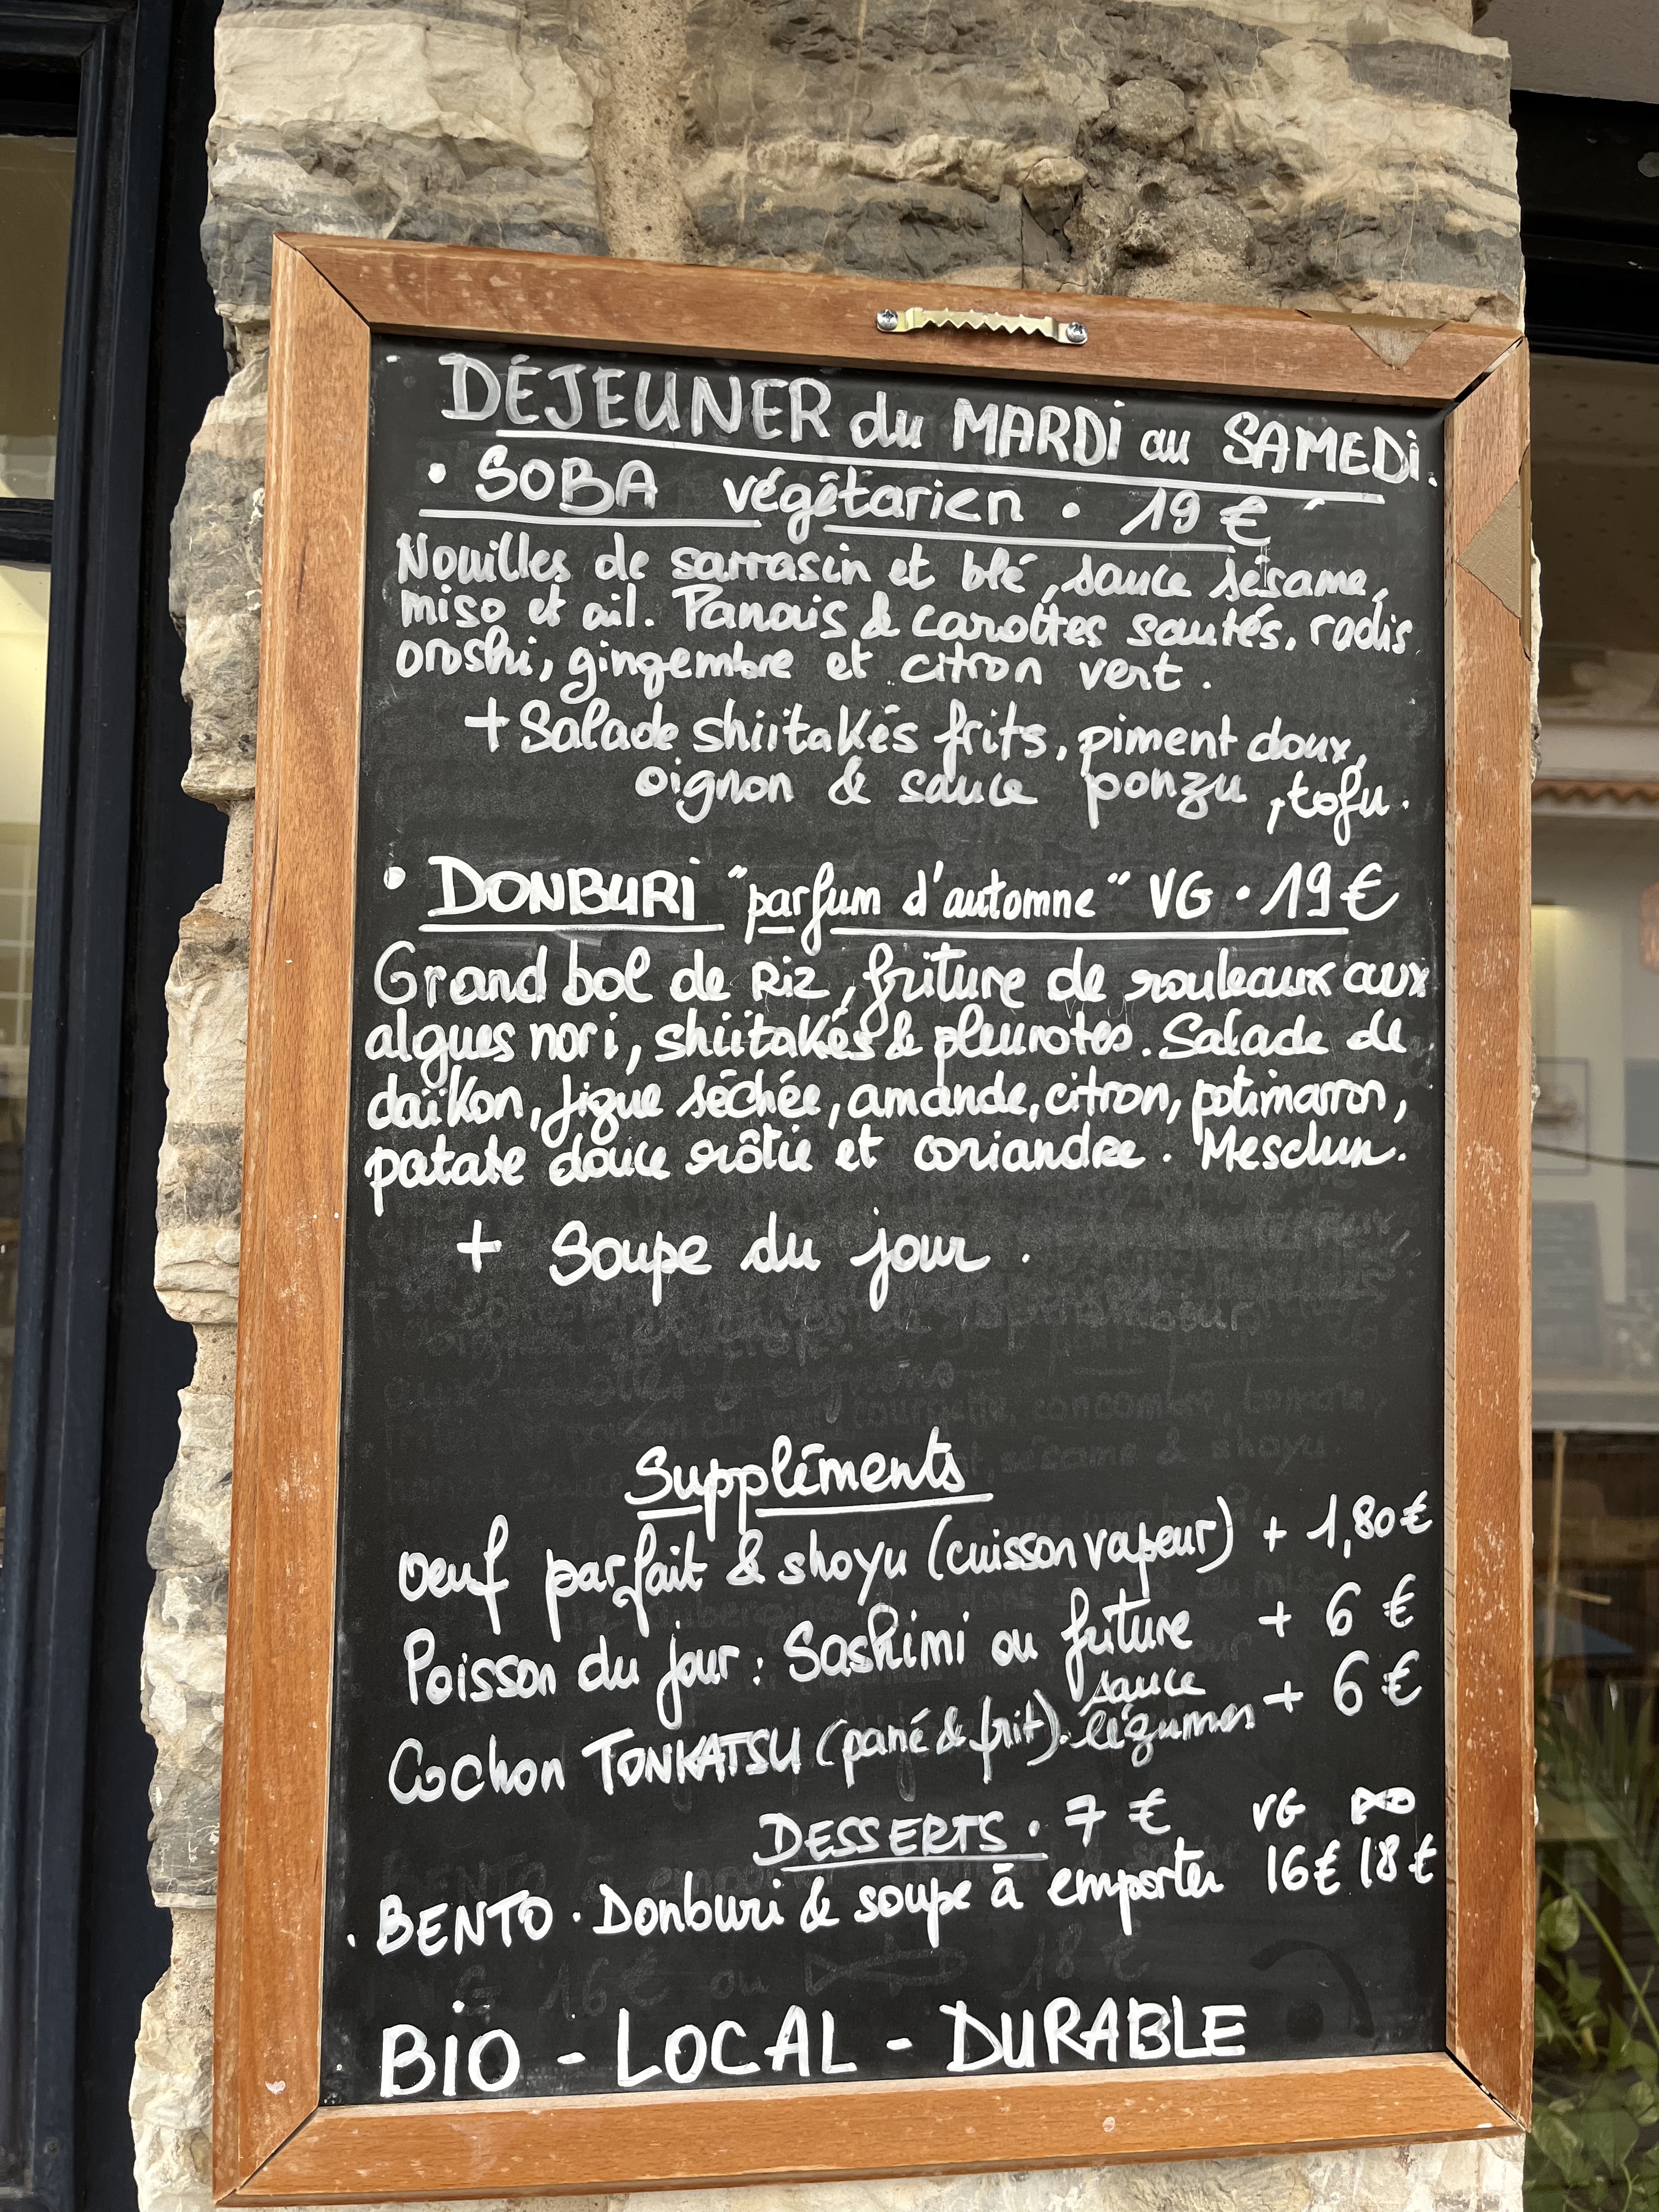 DÉJEUNER du MARDI au SAMEDI.
• SOBA végétarien • 19 €
Nouilles de sarrasin et blé, sauce sésame,
miso et ail. Panais & carottes sautés, radis
oroshi, gingembre et citron vert.
+ Salade shiitakés frits, piment doux,
oignon & sauce ponzu, tofu.
• DONBURI "parfum d'automne" VG • 19 €
Grand bol de Riz, friture de rouleaux aux
algues nori, shiitakés & pleurotes. Salade de
daïkon, figue séchée, amande, citron, potimarron,
patate douce rôtie et coriandre. Mesclun.
+ Soupe du jour.
Suppléments
Oeuf parfait & shoyu (cuisson vapeur) + 1,80 €
Poisson du jour : Sashimi ou friture + 6 €
sauce
Cochon TONKATSU (pané & frit). légumes + 6 €
DESSERTS • 7 € VG
• BENTO • Donburi & soupe à emporter 16 € 18 €
BIO - LOCAL - DURABLE